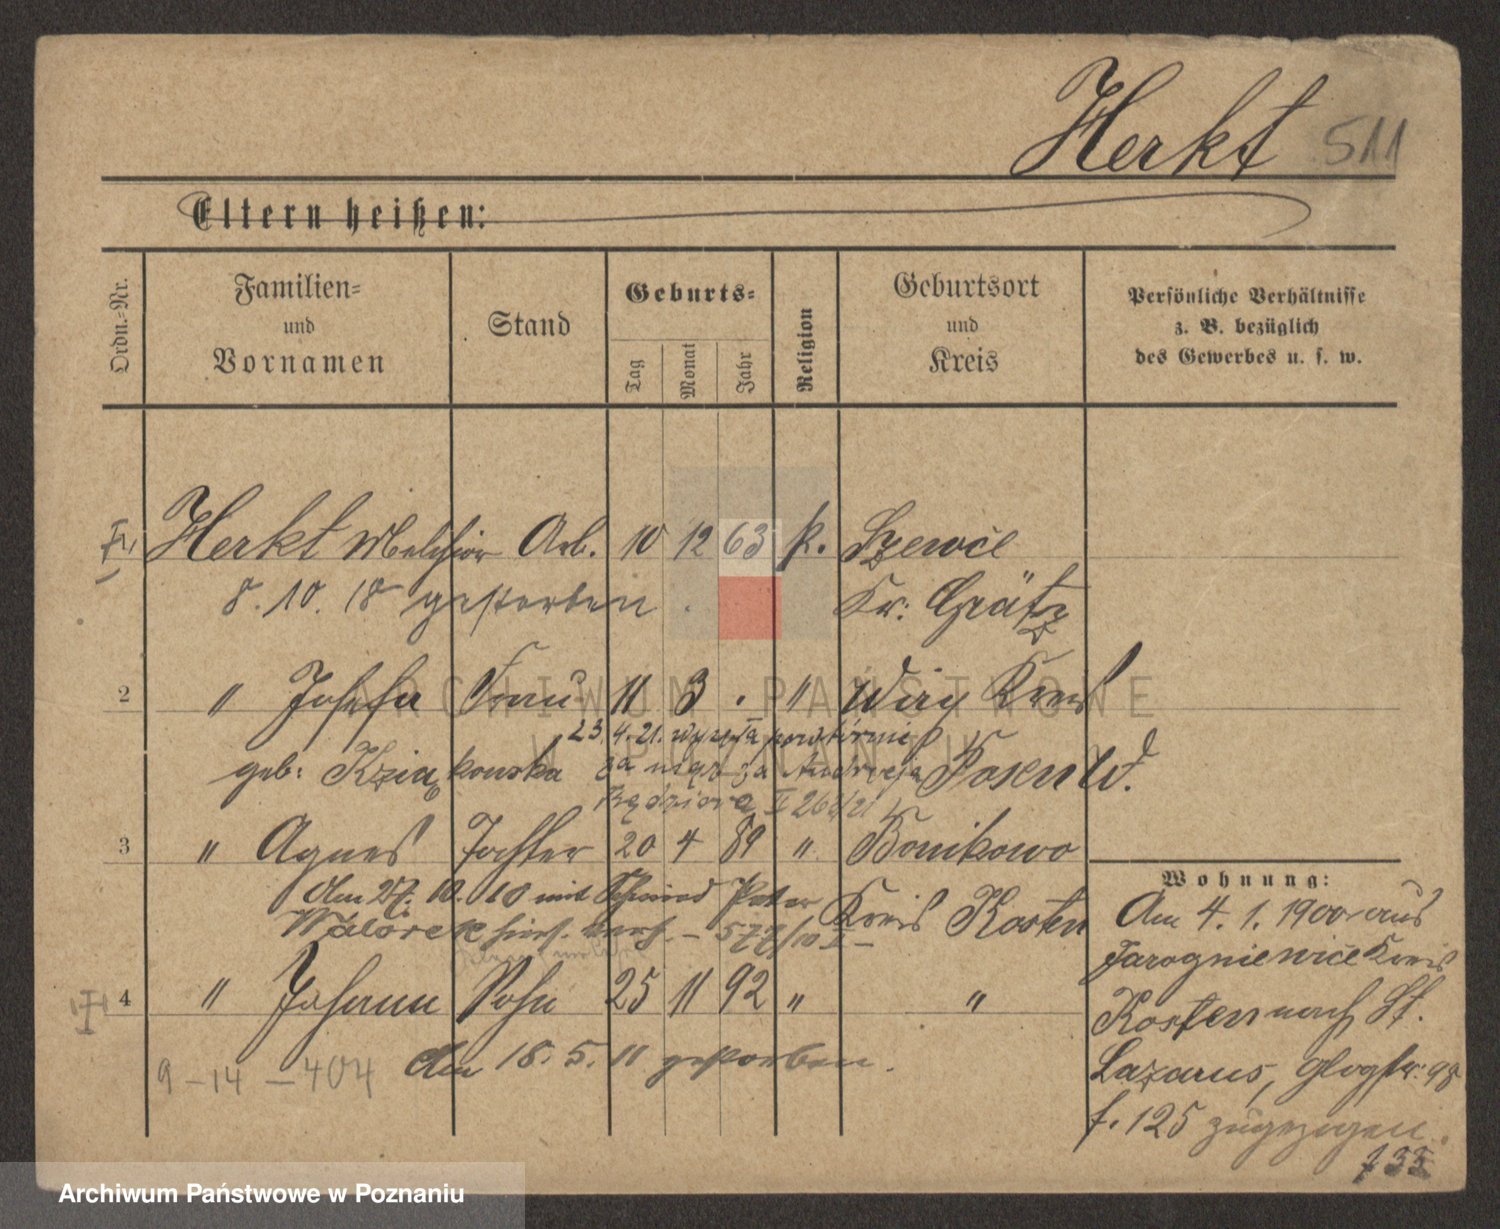 Herkt 511
Eltern heißen:
Ordn.-Nr.
Familien-
und
Vornamen
Stand
Geburts-
Tag
Monat
Jahr
Religion
Geburtsort
und
Kreis
Persönliche Verhältnisse
z. B. bezüglich
des Gewerbes u. s. w.
Herkt Melchior Arb. 10 12 63 k. Szewce
8. 10. 18 gestorben Kr: Grätz
2 " Josefa Frau 11 3 . " Wiry Kreis
23. 4. 21. wyszła powtórnie
geb: Kziąkowska za mąż za Andrzeja Posen W.
3 " Agnes Tochter 20 4 89 " Bonikowo
Am 27. 10. 10 mit Schmied Peter Kreis Kosten
Walorek
4 " Johann Sohn 25 11 92 " "
Am 18. 5. 11 gestorben.
9 – 14 – 404
Wohnung:
Am 4. 1. 1900 aus
Jarogniewice Kreis
Kosten nach St.
Lazarus, Glogstr. 98
f. 125 zugezogen.
ARCHIWUM PAŃSTWOWE
W POZNANIU
Archiwum Państwowe w Poznaniu